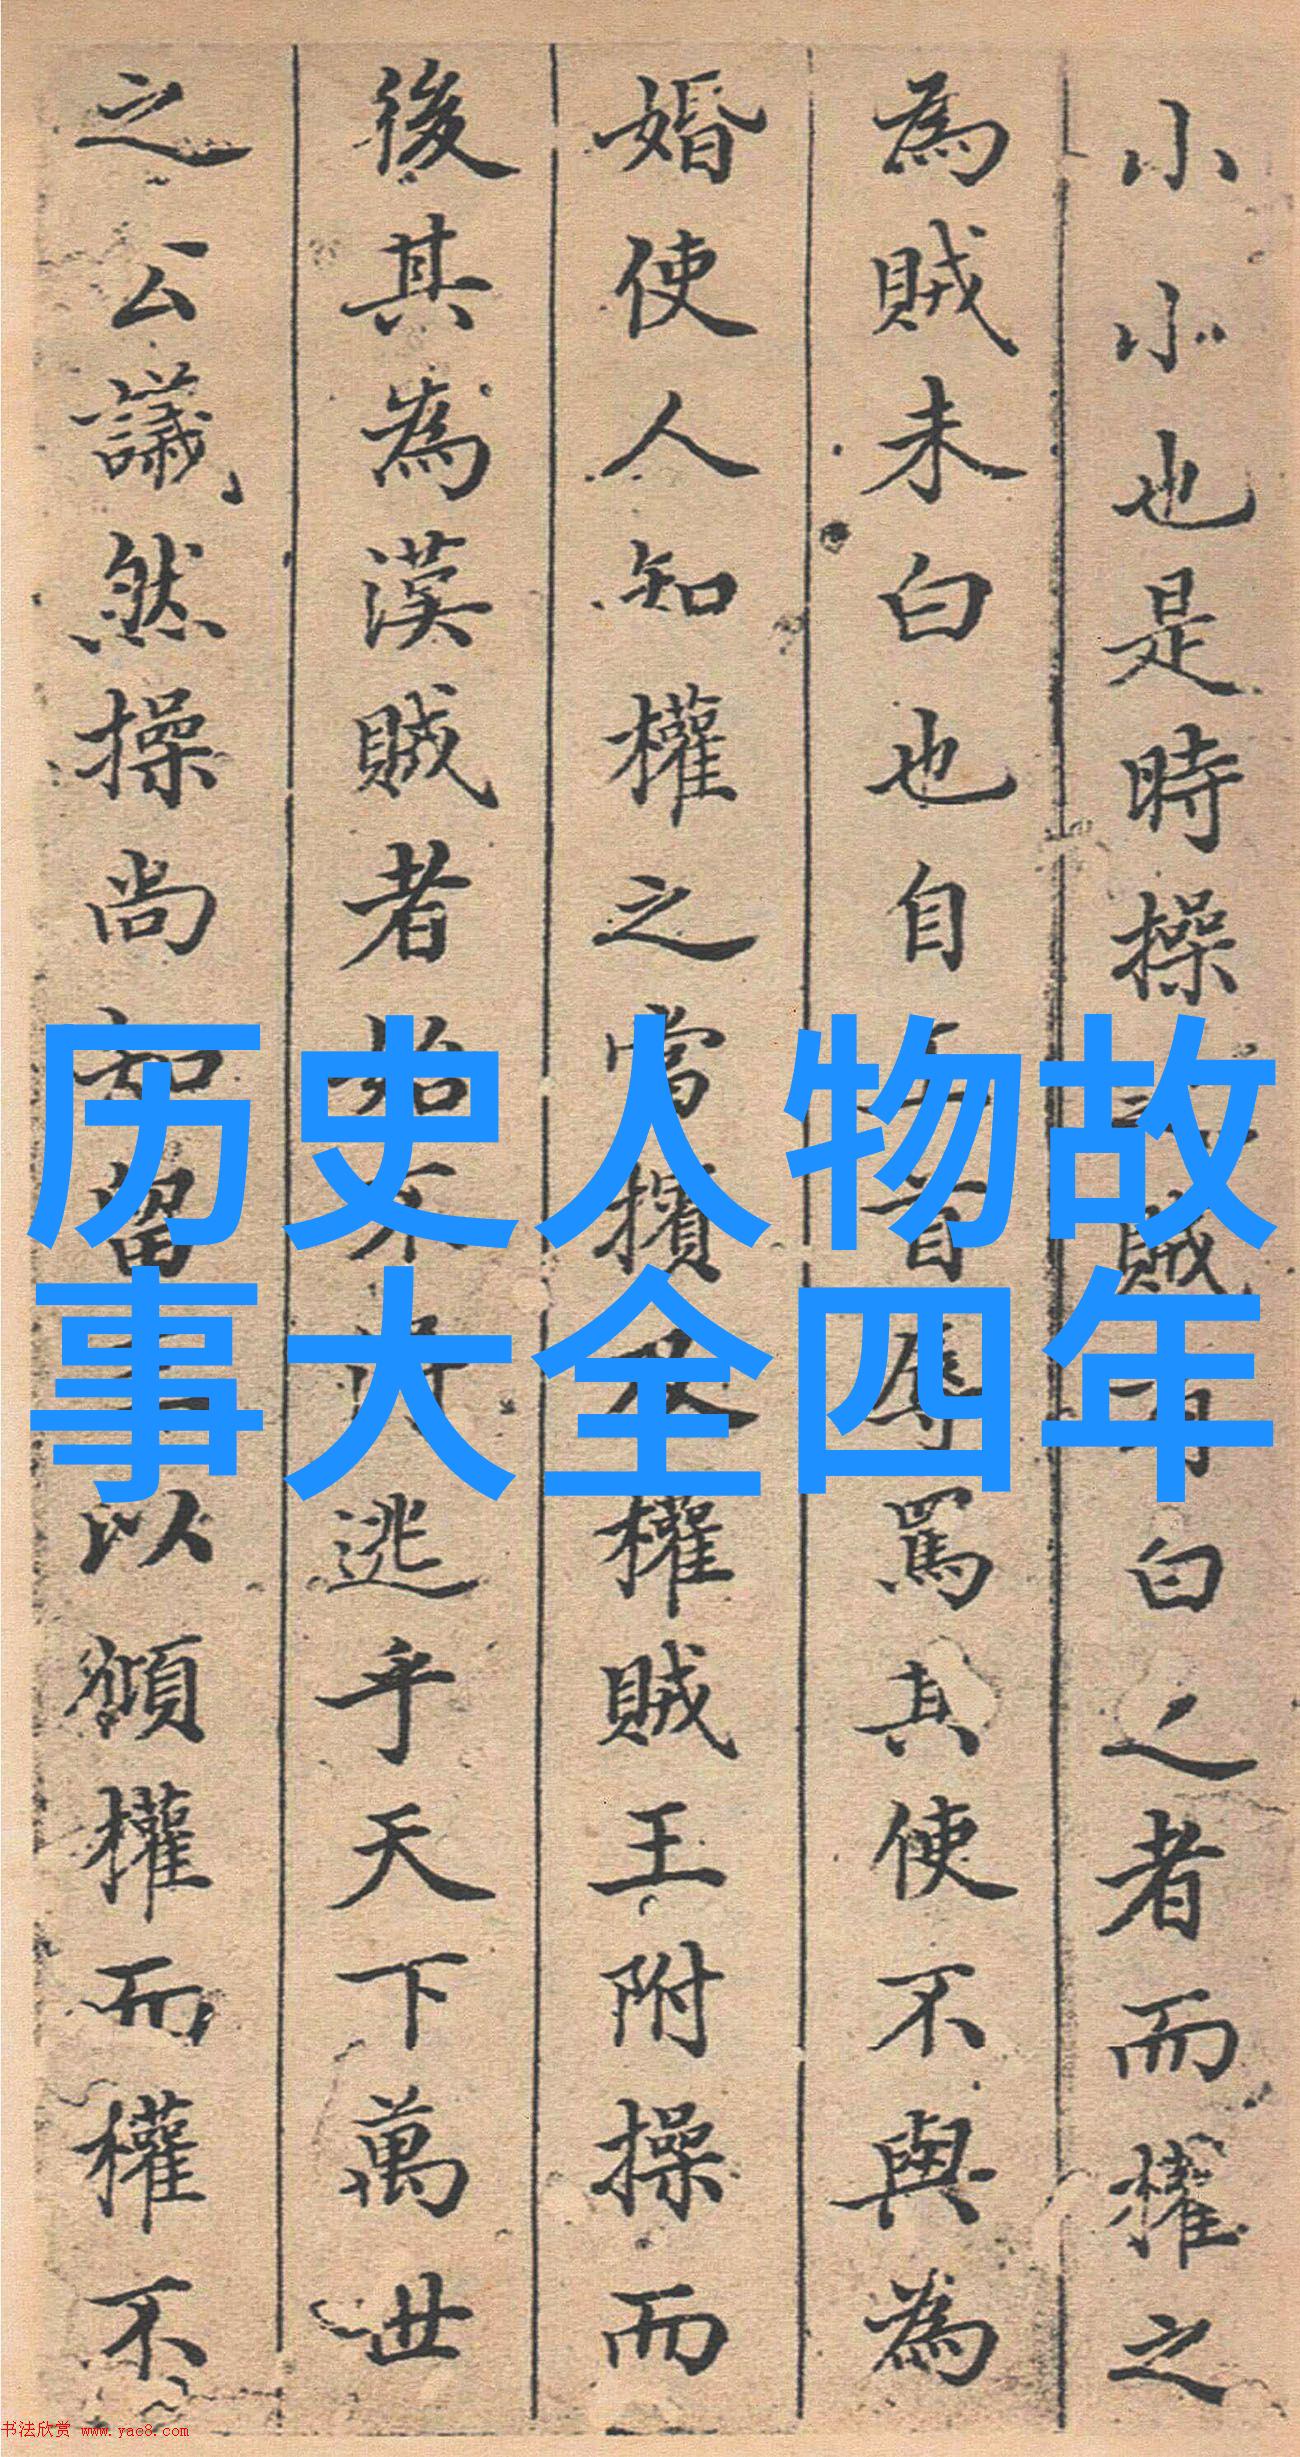 小小也是時操之賊有白之者而權之
為賊未白也自首辱罵其使不與為
婚使人知權之當擯及權賊王附操而
後其為漢賊者始不得逃乎天下萬世
之公議然操尚知留以權而權不
历史人物故
事大全四年
书法欣赏 www.yac8.com